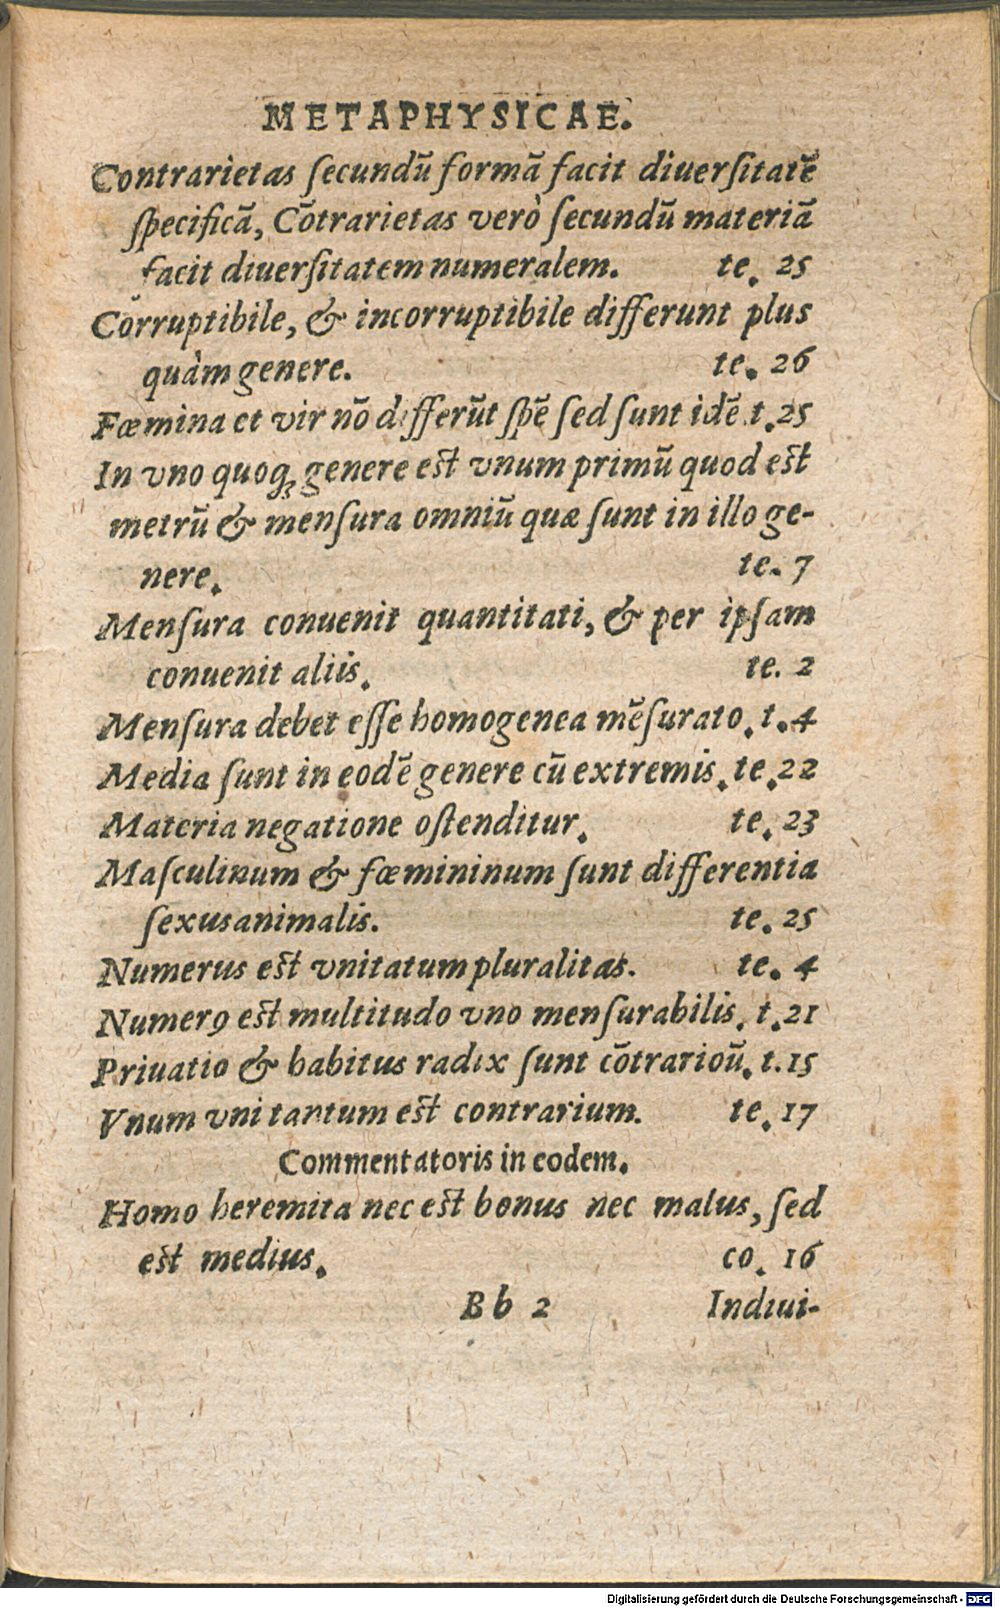 METAPHYSICAE.
Contrarietas ſecundũ formã facit diuerſitatẽ
ſpecificã, Cõtrarietas verò ſecundũ materiã
facit diuerſitatem numeralem. te. 25
Corruptibile, & incorruptibile differunt plus
quàm genere. te. 26
Fœmina et vir nõ differũt ſpẽ ſed ſunt idẽ.t.25
In vno quoqꝫ genere est vnum primũ quod est
metrũ & menſura omniũ quæ ſunt in illo ge-
nere. te. 7
Menſura conuenit quantitati, & per ipſam
conuenit aliis. te. 2
Menſura debet eſſe homogenea mẽſurato. t.4
Media ſunt in eodẽ genere cũ extremis. te.22
Materia negatione oſtenditur. te. 23
Maſculinum & fœmininum ſunt differentia
ſexus animalis. te. 25
Numerus est vnitatum pluralitas. te. 4
Numerꝯ est multitudo vno menſurabilis. t.21
Priuatio & habitus radix ſunt cõtrarioũ. t.15
Vnum vni tantum est contrarium. te. 17
Commentatoris in eodem.
Homo heremita nec est bonus nec malus, ſed
est medius. co. 16
Bb 2 Indiui-
Digitalisierung gefördert durch die Deutsche Forschungsgemeinschaft - DFG